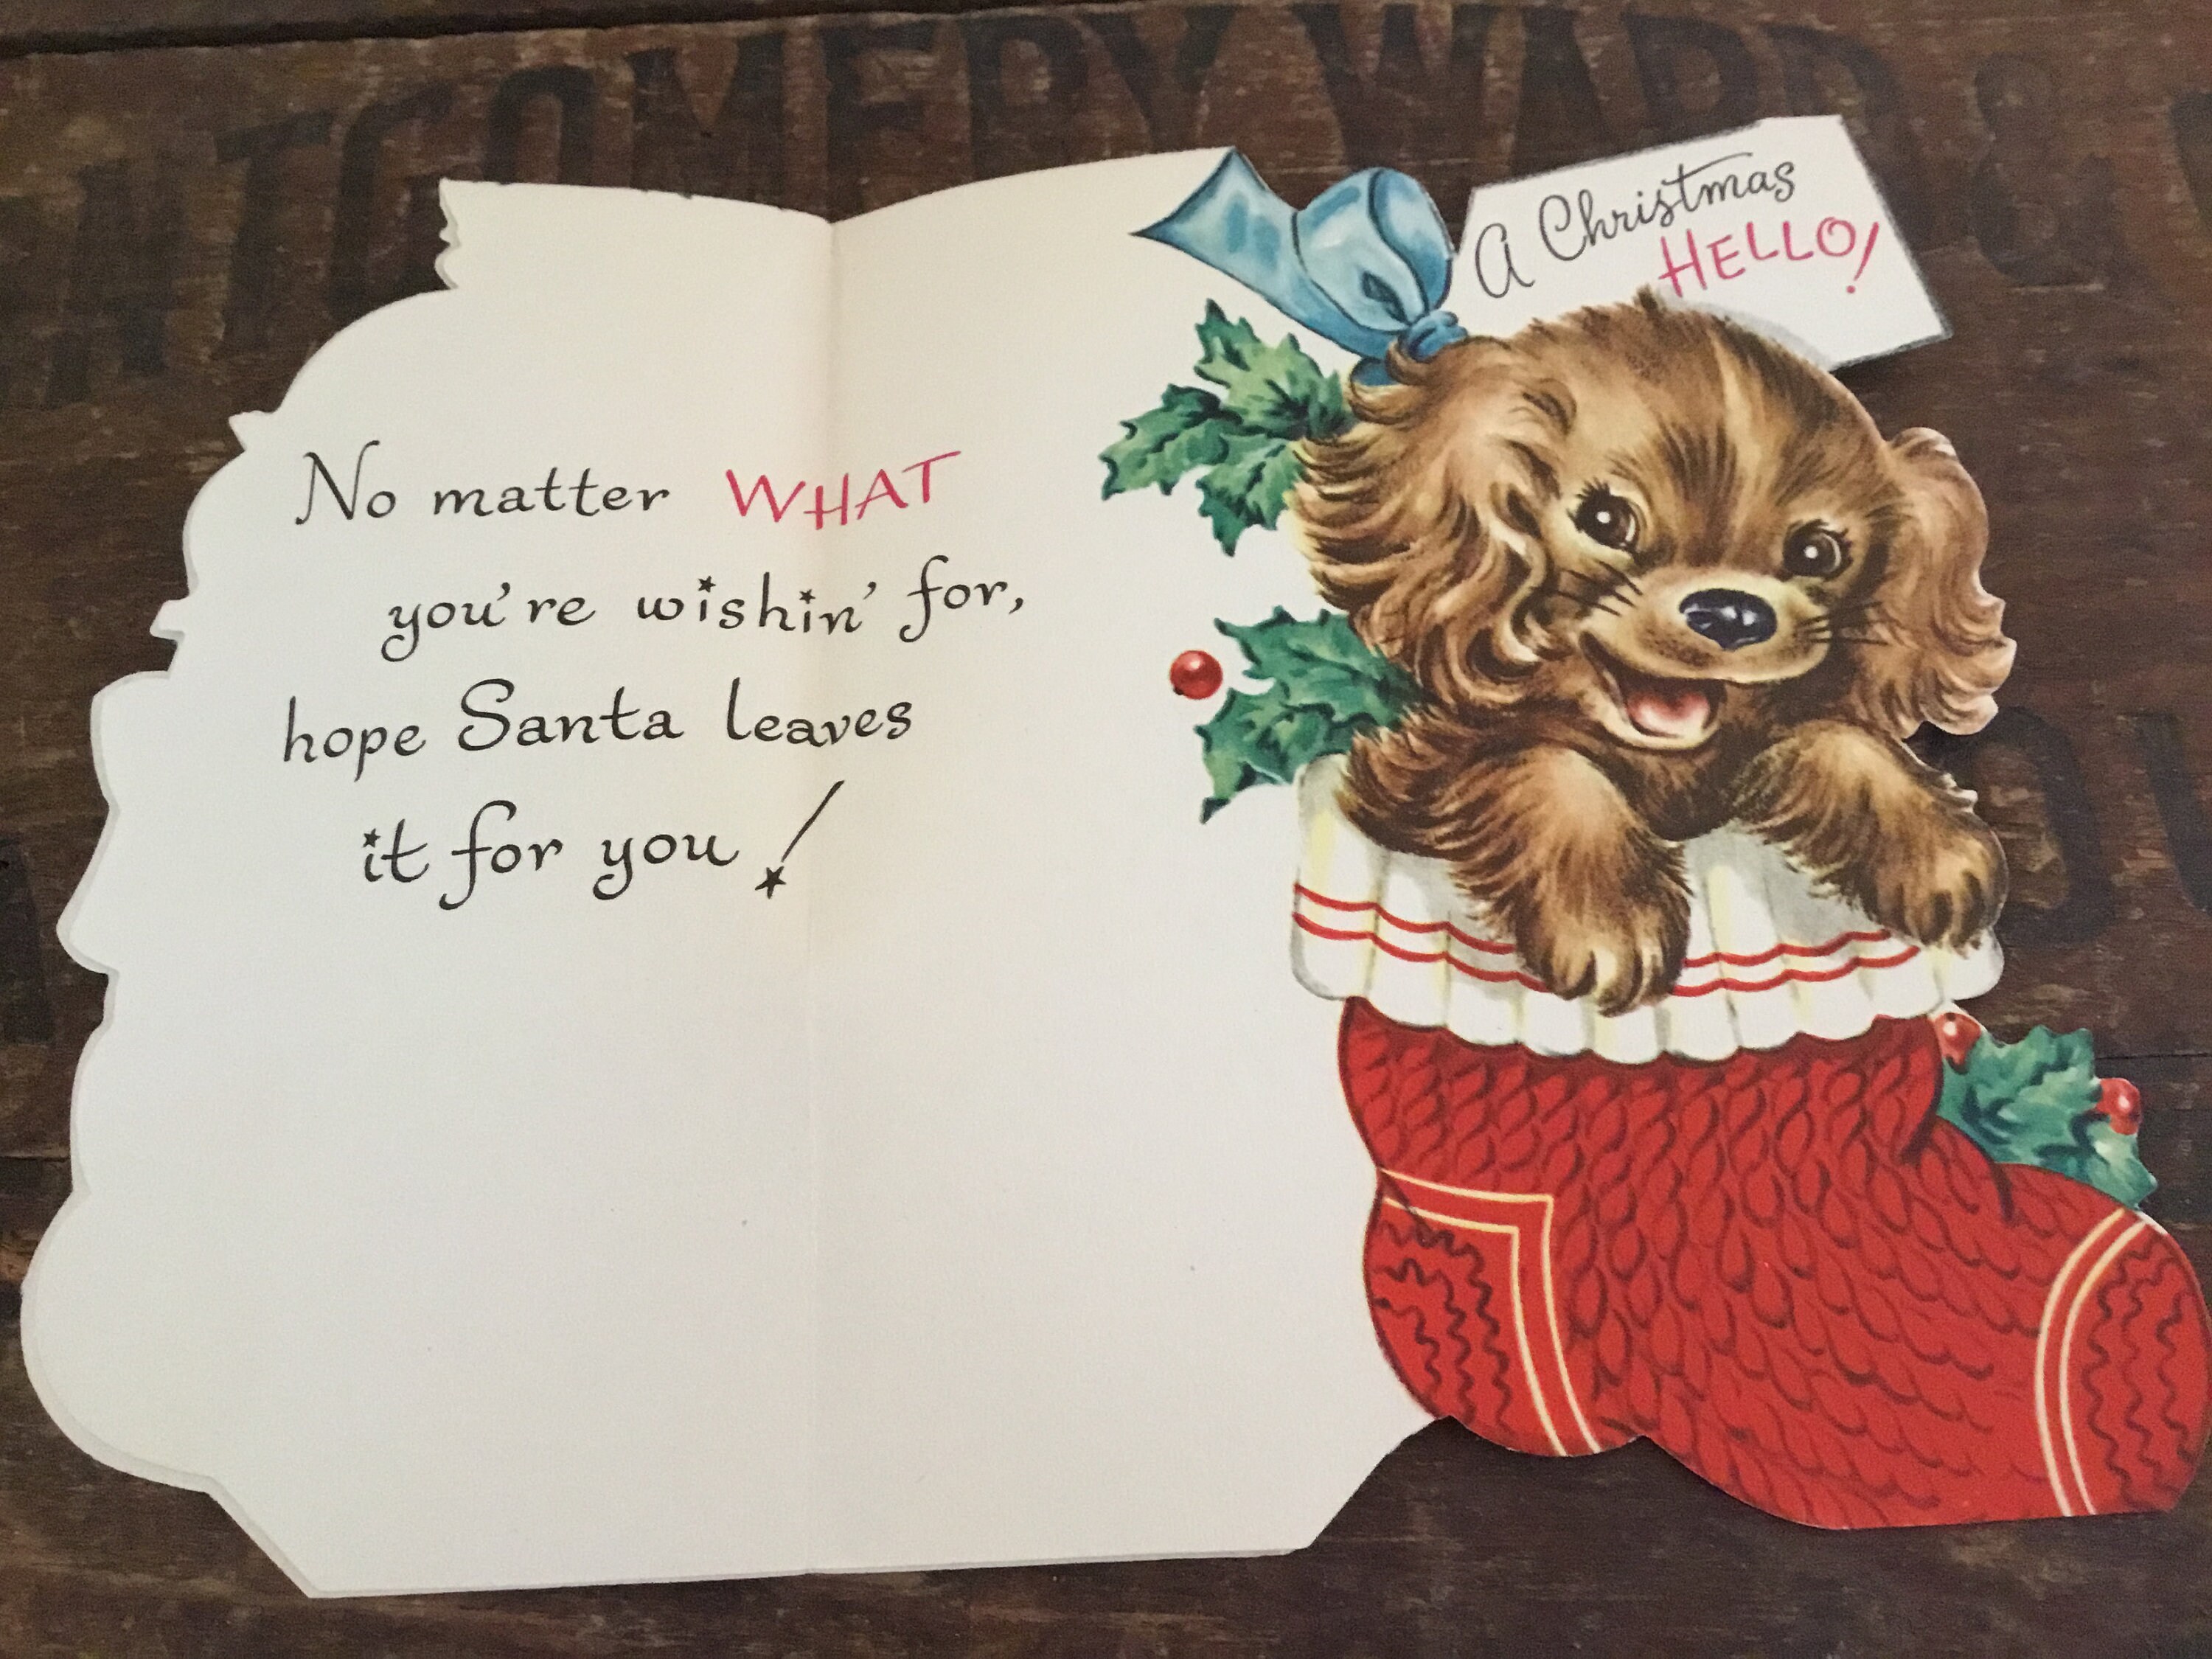 TGOMERY WARD &
A Christmas
HELLO!
No matter WHAT
you're wishin' for,
hope Santa leaves
it for you!